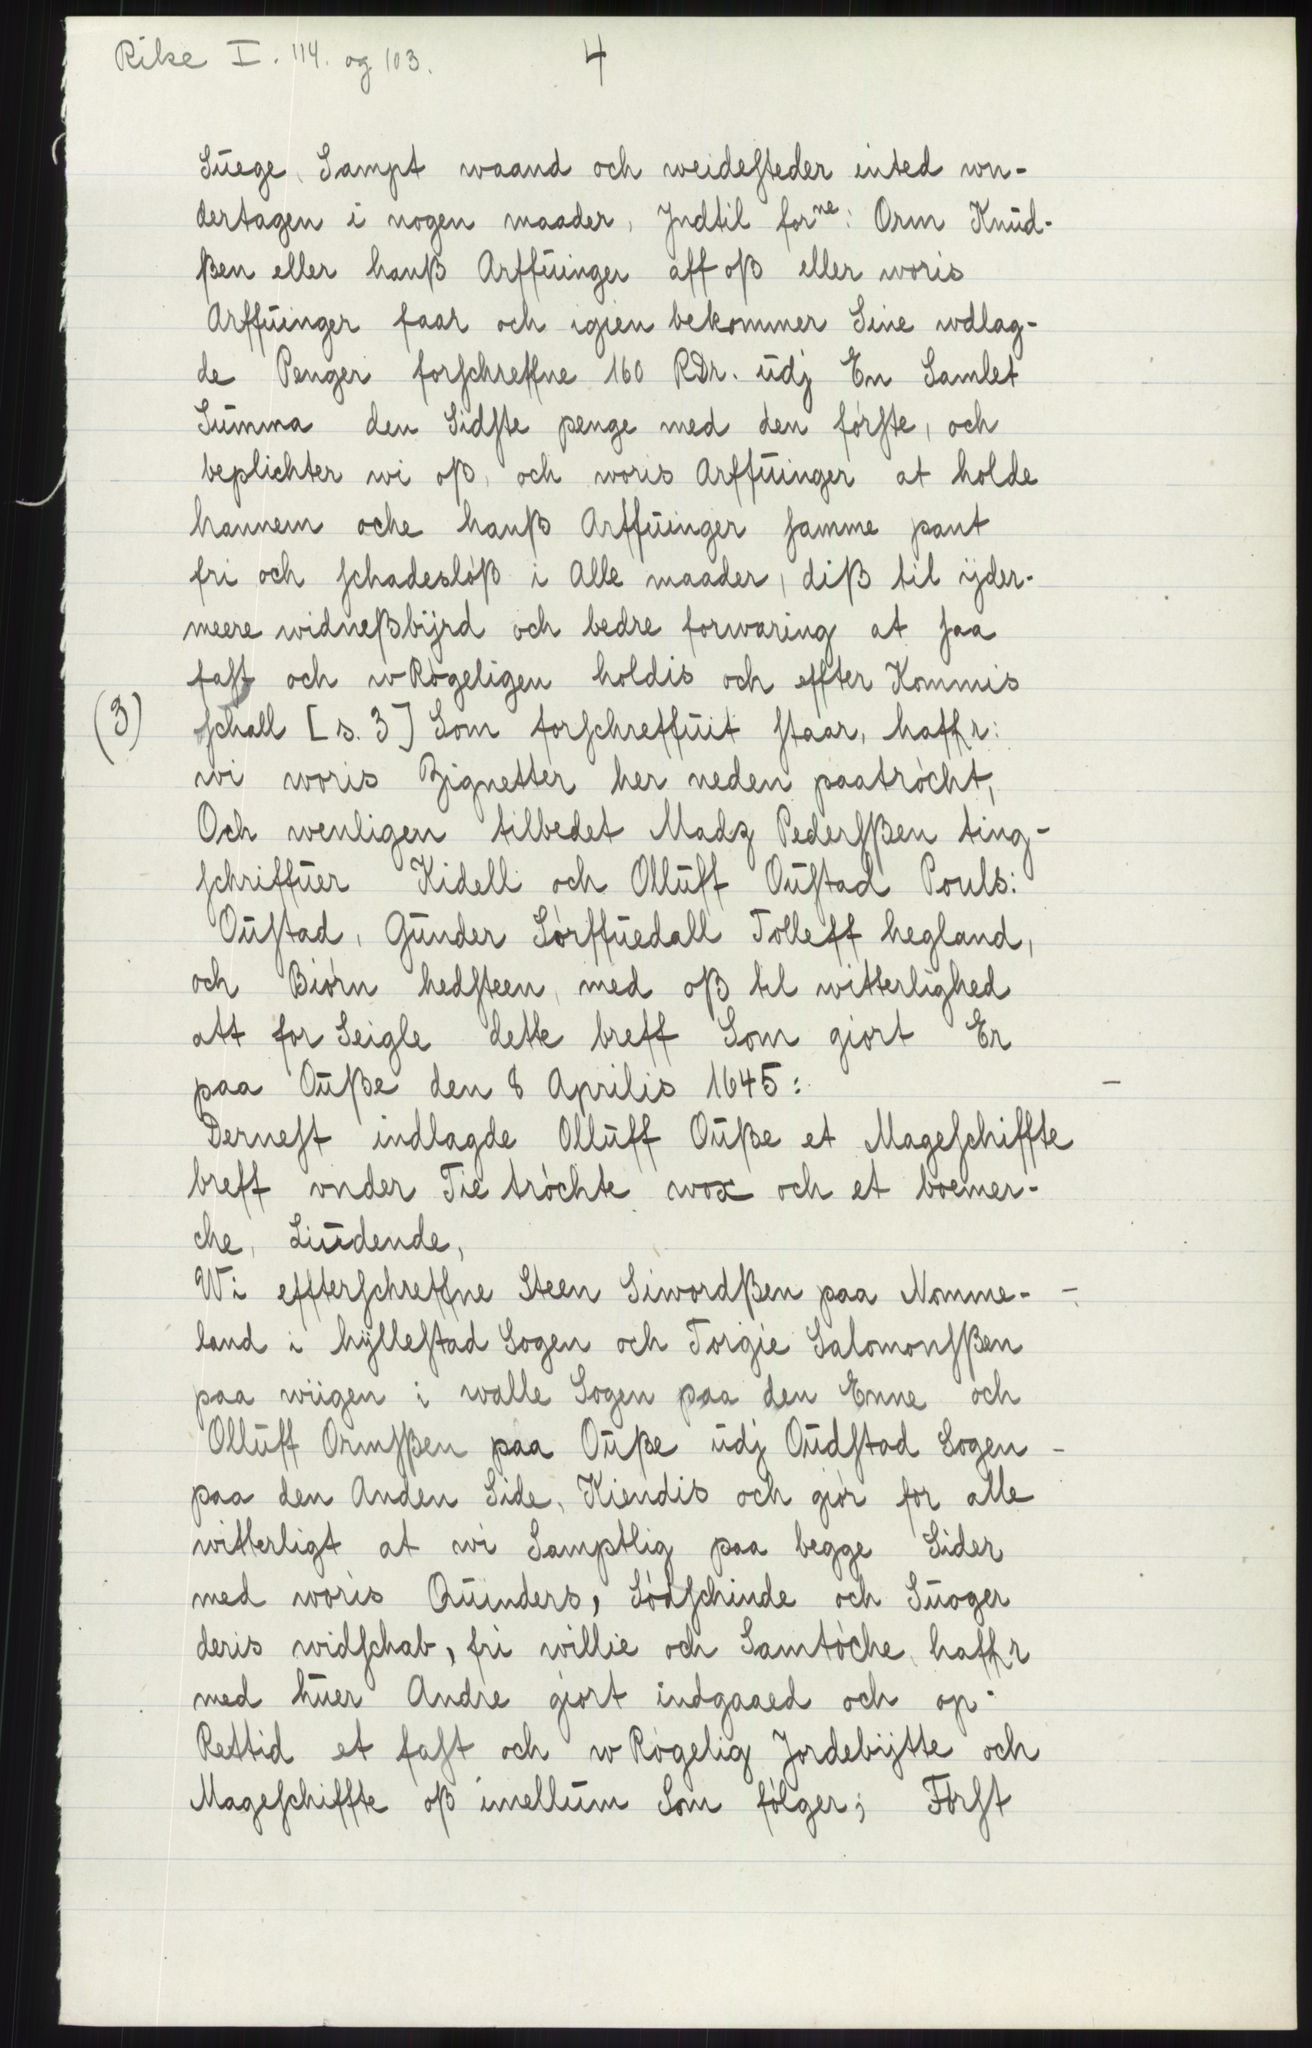 Rike I. 114. og 103.
4
Suege, Sampt waand och weidesteder inted wn-
dertagen i nogen maader, Jndtil forne: Orm Knud-
ßen eller hanß Arffuinger aff oß eller woris
Arffuinger faar och igien bekommer Sine wdlag-
de Penger forschreffne 160 RDr. udj En Samlet
Summa den Sidste penge med den förste, och
beplichter wi oß, och woris Arffuinger at holde
hannem oche hanß Arffuinger samme pant
fri och schadeslöß i Alle maader, diß til ijder-
meere widneßbijrd och bedre forwaring at saa
fast och wRögeligen holdis och effter Kommis
(3)
schall [s. 3] Som forschreffuit staar, haffr:
wi woris Zignetter her neden paatröcht,
Och wenligen tilbedet Madz Pederssßen ting-
schriffuer Kidell och Olluff Oustad Pouls:
Oustad, Gunder Sörffuedall Tolleff hegland,
och Biörn hedsteen, med oß til witterlighed
att for Seigle dette breff Som giort Er
paa Ouße den 8 Aprilis 1645: —
Dernest indlagde Olluff Ouße et Mageschiffte
breff vnder Tie tröchte wox och et boemer-
che, Liudende,
Wi effterschreffne Steen Siwordßen paa Nomme- -
land i hÿllestad Sogen och Torgie Salomonsßen
paa wiigen i walle Sogen paa den Enne och
Olluff Ormsßen paa Ouße udj Oudstad Sogen -
paa den Anden Side, Kiendis och giör for alle
witterligt at wi Samptlig paa begge Sider
med woris Quinders, Södschinde och Suoger
deris widschab, fri willie och Samtöche, haffr
med huer Andre giort indgaaed och op-
Rettid et fast och wRögelig Jordebijtte och
Mageschiffte oß imellum Som fölger; Först